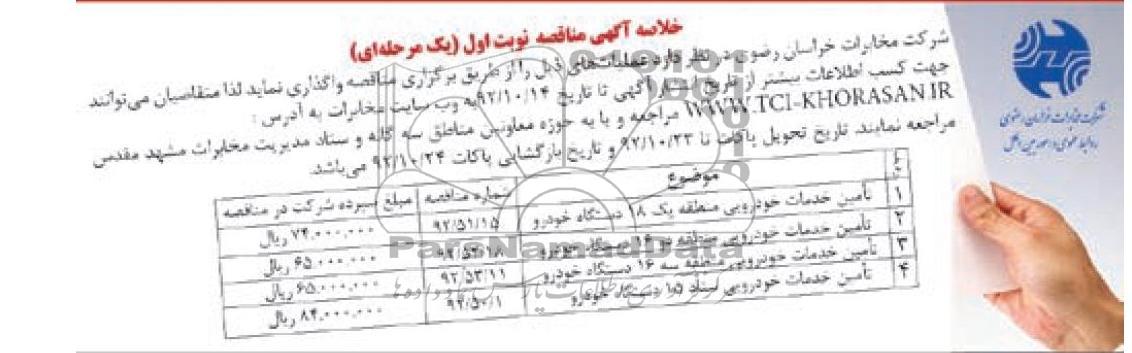 خلاصه آگهی مناقصه نوبت اول (یک مرحله‌ای)
شرکت مخابرات خراسان رضوی در نظر دارد عملیات‌های ذیل را از طریق برگزاری مناقصه واگذاری نماید لذا متقاضیان می‌توانند
جهت کسب اطلاعات بیشتر از تاریخ انتشار آگهی تا تاریخ ۹۲/۱۰/۱۴ به وب سایت مخابرات به آدرس :
WWW.TCI-KHORASAN.IR مراجعه و یا به حوزه معاونین مناطق سه گانه و ستاد مدیریت مخابرات مشهد مقدس
مراجعه نمایند. تاریخ تحویل پاکات تا ۹۲/۱۰/۲۳ و تاریخ بازگشایی پاکات ۹۲/۱۰/۲۴ می‌باشد.
موضوع شماره مناقصه مبلغ سپرده شرکت در مناقصه
۱ تأمین خدمات خودرویی منطقه یک ۱۸ دستگاه خودرو ۹۲/۵۱/۱۵ ۷۴,۰۰۰,۰۰۰ ریال
۲ تأمین خدمات خودرویی منطقه دو دستگاه خودرو ۶۵,۰۰۰,۰۰۰ ریال
۳ تأمین خدمات خودرویی منطقه سه ۱۶ دستگاه خودرو ۹۲/۵۳/۱۱ ۶۵,۰۰۰,۰۰۰ ریال
۴ تأمین خدمات خودرویی ستاد ۱۵ دستگاه خودرو ۹۲/۵۰/۱ ۸۴,۰۰۰,۰۰۰ ریال
شرکت مخابرات خراسان رضوی
ParsNamadData